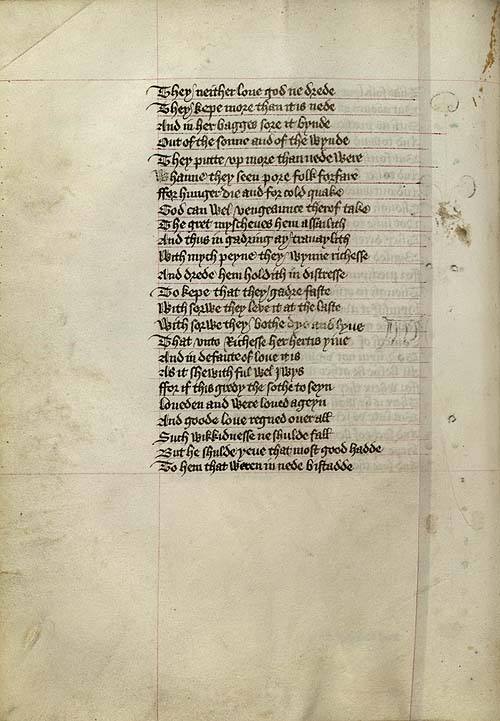 They neither loue god ne drede
They kepe more than it is nede
And in her bagges sore it bynde
Out of the sonne and of the wynde
They putte vp more than nede were
Whanne they seen pore folk forfare
ffor hunger die and for cold quake
God can wel vengeaunce therof take
The gret myscheves hem assailith
And thus in gadring ay travaylith
With mych peyne they wynne richesse
And drede hem holdith in distresse
To kepe that they gadre faste
With sorwe they leve it at the laste
With sorwe they bothe dye and lyue
That vnto Richesse her hertis yive
And in defaute of loue it is
As it shewith ful wel Iwys
ffor if this gredy the sothe to seyn
loueden and were loued ageyn
And goode loue regned ouer all
Such wikkidnesse ne shulde fall
But he shulde yeue that most good hadde
To hem that weren in nede bistadde